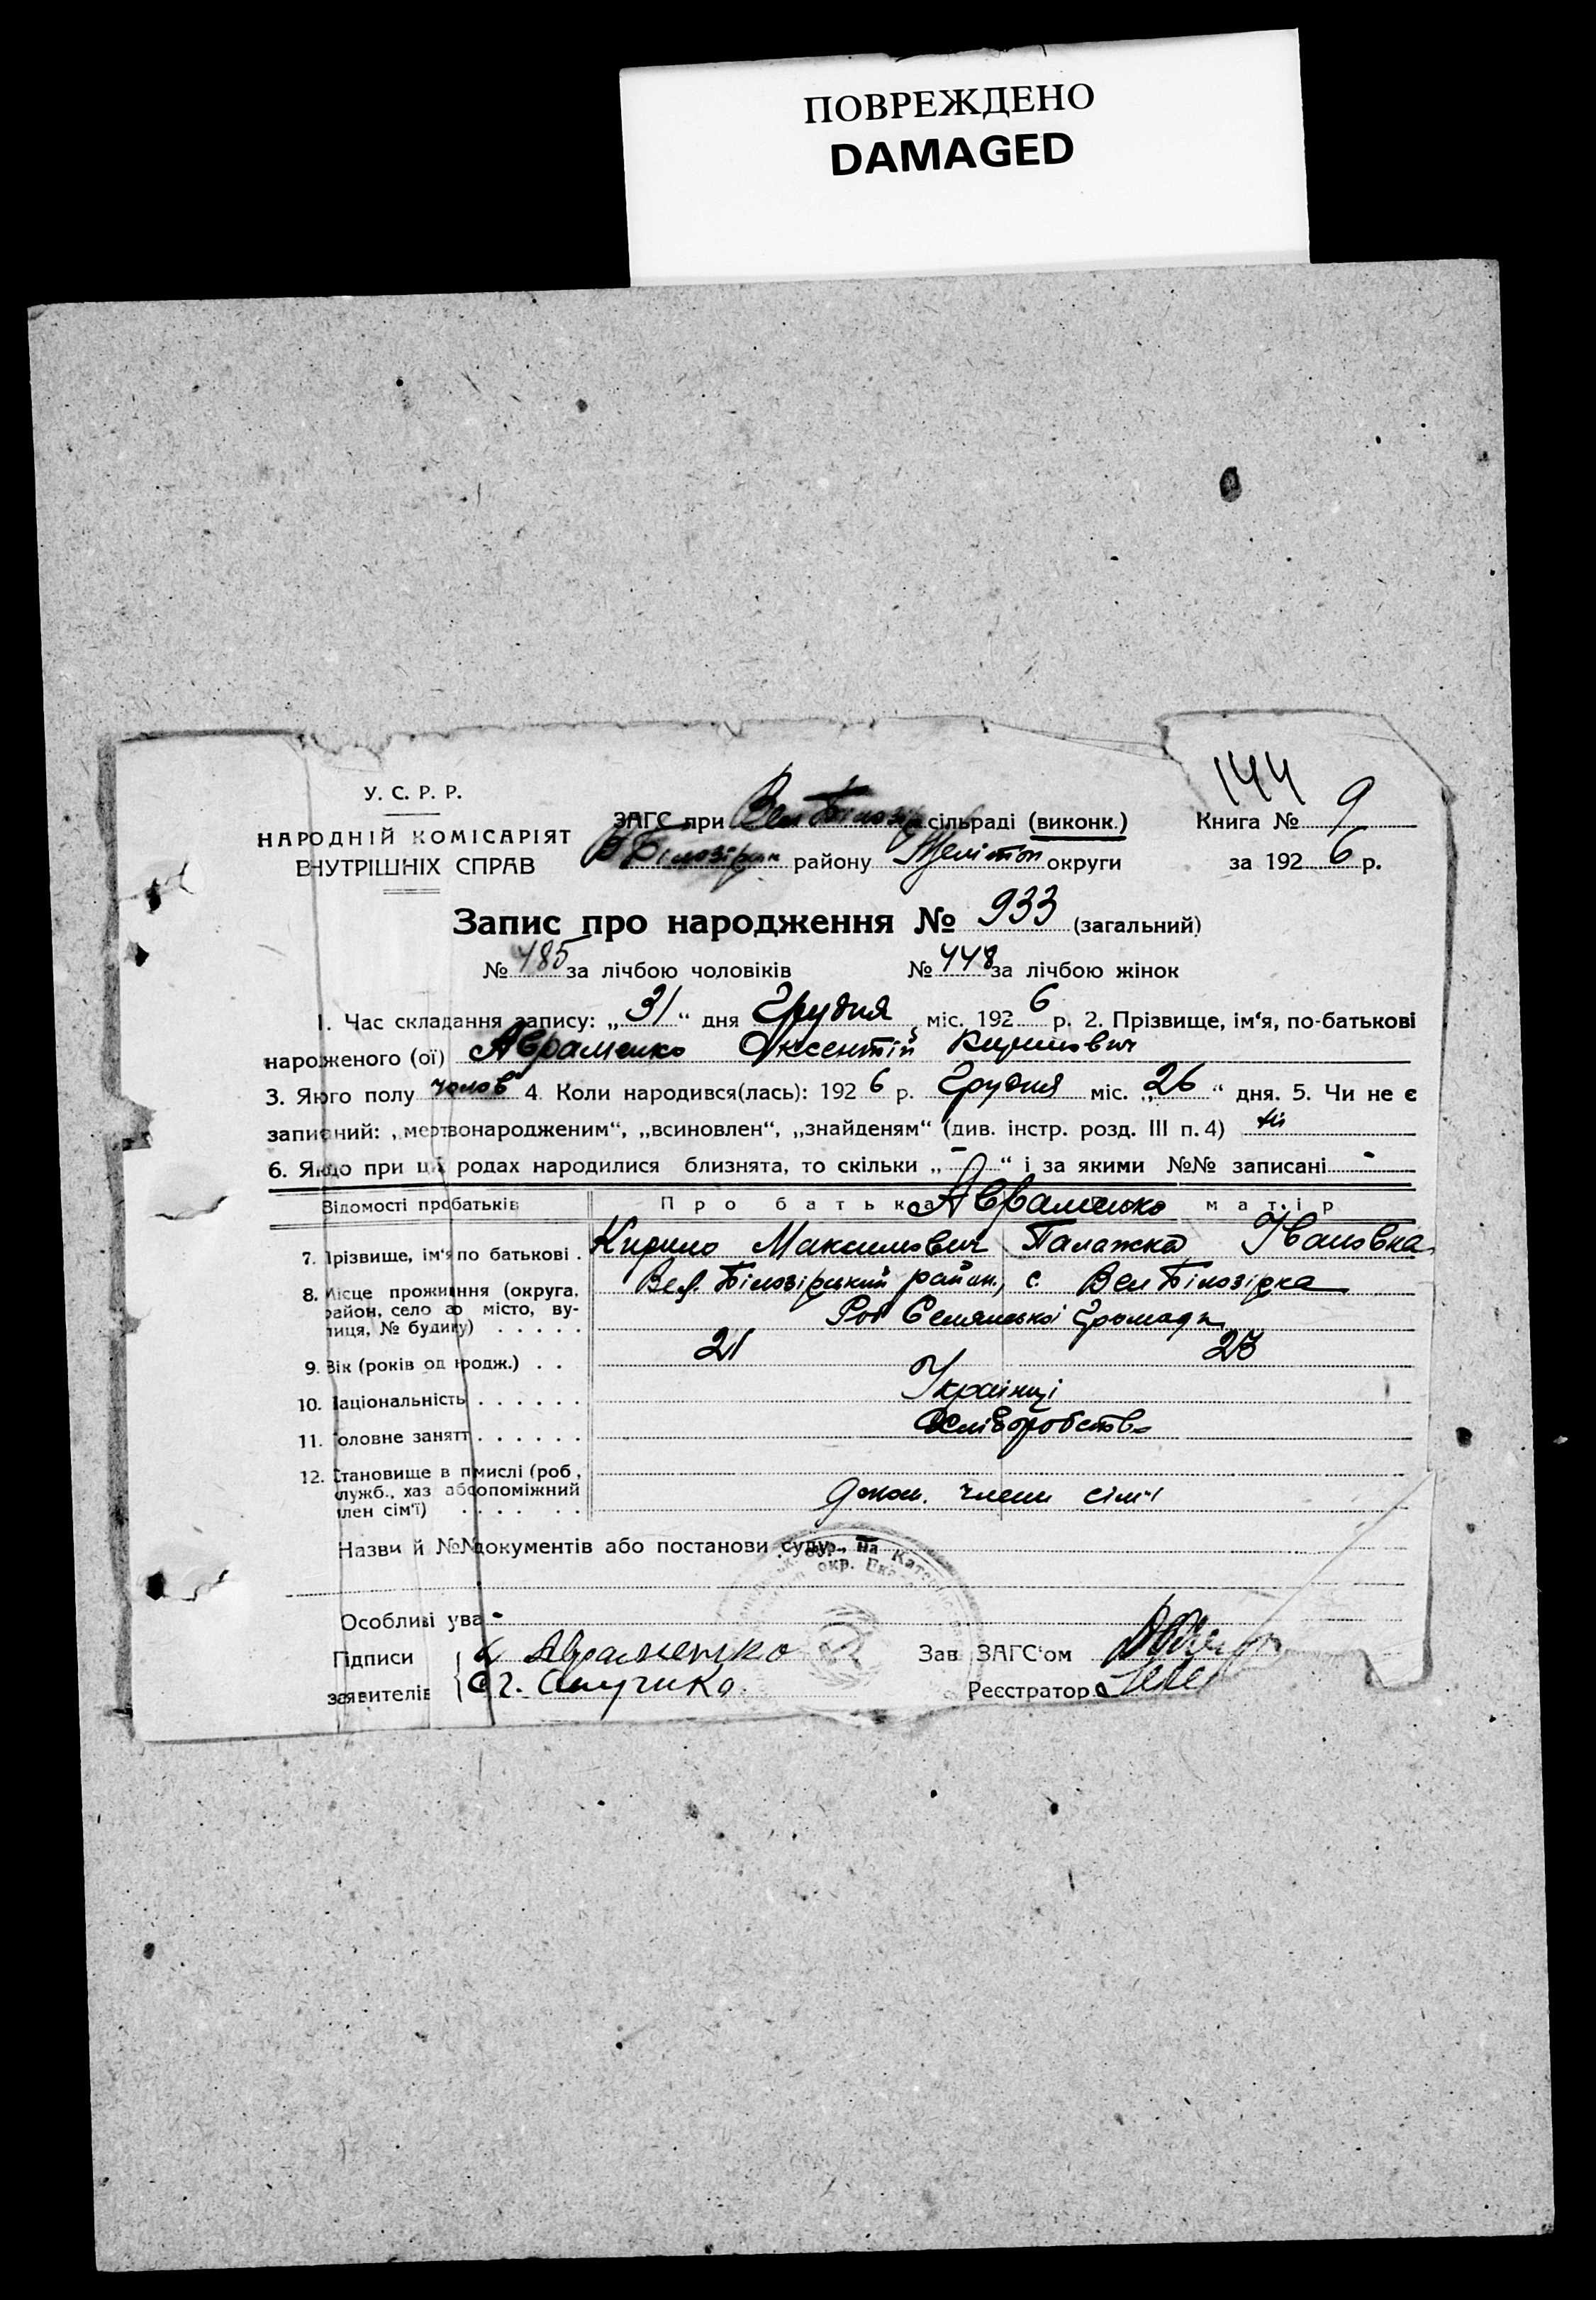 ПОВРЕЖДЕНО
DAMAGED
144
У. С. Р. Р.
НАРОДНІЙ КОМІСАРІЯТ
ВНУТРІШНІХ СПРАВ
ЗАГС при Вел Білозір сільраді (виконк.)
В Білозірськ районy Мелітоп округи
Книга № 9
за 1926 р.
Запис про народження № 933 (загальний)
№ 485 за лічбою чоловіків № 448 за лічбою жінок
1. Час складання запису: „31“ дня Грудня міс. 1926 р. 2. Прізвище, ім‘я, по-батькові
нароженого (ої) Авраменко Оксентій Кирилович
3. Якого полу чолов 4. Коли народився(лась): 1926 р. Грудня міс. „26“ дня. 5. Чи не є
записаний: „мертвонародженим“, „всиновлен“, „знайденям“ (див. інстр. розд. III п. 4) ні
6. Якщо при ци родах народилися близнята, то скільки „-“ і за якими №№ записані -
Відомості про батьків Про батька матір
Авраменко
7. Прізвище, ім‘я по батькові . Кирило Максимович Палажка Івановна
8. Місце проживання (округа, район, село або місто, вулиця, № будинку) . . . . . Вел. Білозірський район, с. Вел Білозірка
Селянської Громади
9. Вік (років од нродж.) . . 21 23
10. Національність . . . . . . Українці
11. Головне заняття . . . . . . Хліборобство
12. Становище в промислі (роб., служб., хаз або допоміжний член сім‘ї) . . . . . . допом. члени сім'ї
Назви й №№ документів або постанови суду
Особливі ува -
Підписи
заявителів
К Авраменко
Зав. ЗАГС‘ом
Реєстратор